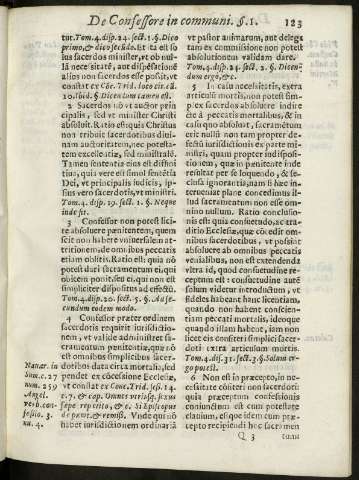 De Confessore in communi. §. 1. 123
tur. Tom. 4. disp. 24. sect. 1. §. Dico
primo, & dico secundo. Et ita est so
lus sacerdos minister, vt ob nul
lā necessitatē, aut dispēsationē
alius non sacerdos esse possit, vt
constat ex Cōc. Trid. loco cit. cā.
10. Ibid. §. Dicendum tamen est.
2 Sacerdos nō vt auctor prin
cipalis, sed vt minister Christi
absoluit. Ratio est: quia Christus
non tribuit sacerdotibus diui-
nam auctoritatem, nec potesta-
tem excellentiæ, sed ministralē.
Tamen sententia eius est defini
tiua, quia vere est simul sentētia
Dei, vt principalis iudicis, ip-
sius vero sacerdotis, vt ministri.
Tom. 4. disp. 19. sect. 1. §. Neque
inde fit.
3 Confessor non potest lici-
te absoluere pœnitentem, quem
scit non habere vniuersalem at-
tritionem, de omnibus peccatis
etiam oblitis. Ratio est: quia nō
potest dari sacramentum ei, qui
obicem ponit, seu ei, qui non est
simpliciter dispositus ad effectū.
Tom. 4. disp. 20. sect. 5. §. At se-
cundum eodem modo.
4 Confessor præter ordinem
sacerdotis requirit iurisdictio-
nem, vt valide administret sa-
cramentum pœnitentiæ, quæ nō
est omnibus simplicibus sacer-
dotibus data circa mortalia, sed
pendet ex cōcessione Ecclesiæ,
vt constat ex Conc. Trid. sess. 14.
c. 7. & cap. Omnes vtriusq. sexus
sæpe repetito, & c. Si Episcopus
de pœnit. & remiss. Vnde qui nō
habet iurisdictionem ordinariā
Nauar. in
Sum. c. 27
num. 259
Angel.
verb. con-
fessio. 3.
nu. 4.
vt pastor animarum, aut delega
tam ex commissione non potest
absolutionem validam dare.
Tom. 4. disp. 24. sect. 2. §. Dicen-
dum ergo, &c.
5 In casu necessitatis, extra
articulū mortis, non potest sim-
plex sacerdos absoluere indire
ctè à peccatis mortalibus, & in
casu quo absoluat, sacramētum
erit nullū non tam propter de-
fectū iurisdictionis ex parte mi-
nistri, quam propter indispositi-
onem, quæ in pœnitente inde
resultat per se loquendo, & se-
clusa ignorantia, nam si hæc in-
terueniat plane concedimus il-
lud sacramentum non esse om-
nino nullum. Ratio conclusio-
nis est: quia consuetudo, ac tra-
ditio Ecclesiæ, quæ cōcedit om-
nibus sacerdotibus, vt possint
absoluere ab omnibus peccatis
venialibus, non est extendenda
vltra id, quod consuetudine re-
ceptum est: consuetudine autē
solum videtur introductum, vt
fideles habeant hanc licentiam
quando non habent conscien-
tiam peccati mortalis, ideoque
quando illam habent, iam non
licet ei confiteri simplici sacer-
doti extra articulum mortis.
Tom. 4. disp. 31. sect. 3. §. Solum er-
go potest.
6 Non est in præcepto, in ne-
cessitate cōfiteri non sacerdoti:
quia præceptum confessionis
coniunctum est cum potestate
clauium, idque idem esse præ-
cepto recipiendi hoc sacramen
Q 3